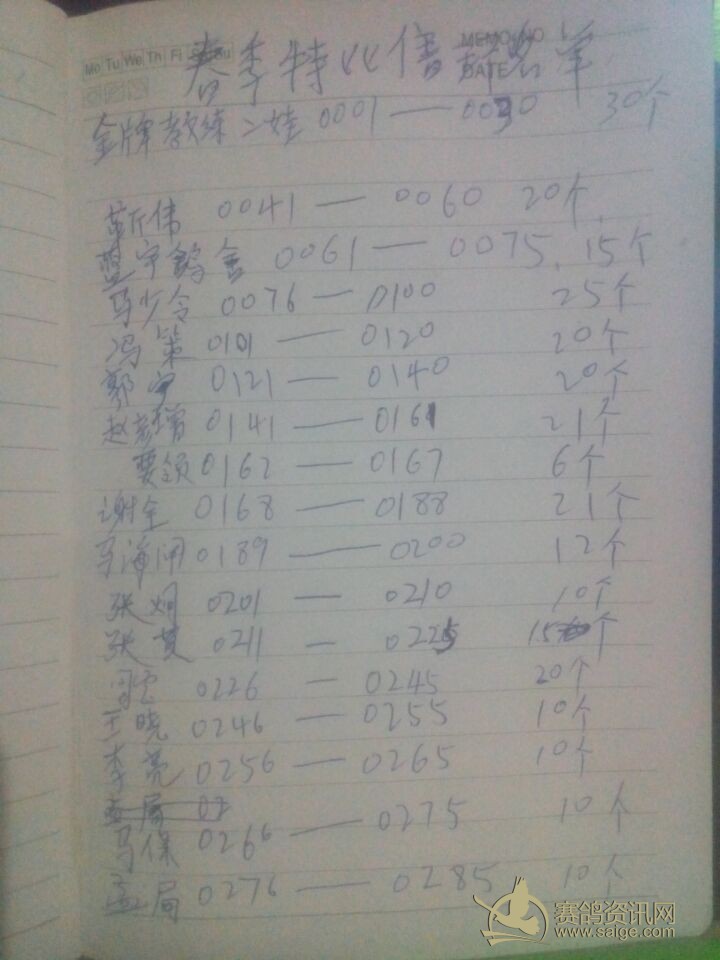 Mo Tu We Th Fi Su
MEMO NO
DATE
春季特比信鸽名单
金牌教练二娃 0001——0030 30个
靳伟 0041——0060 20个
蓝宇鸽舍 0061——0075 15个
马少令 0076——0100 25个
冯策 0101——0120 20个
郭宁 0121——0140 20个
赵彦增 0141——0161 21个
要领 0162——0167 6个
谢全 0168——0188 21个
马海闹 0189——0200 12个
张炯 0201——0210 10个
张英 0211—0225 15个
0226—0245 20个
王晓 0246——0255 10个
李亮 0256——0265 10个
孟局 02
马保 0266——0275 10个
孟局 0276——0285 10个
赛鸽资讯网
www.saige.com